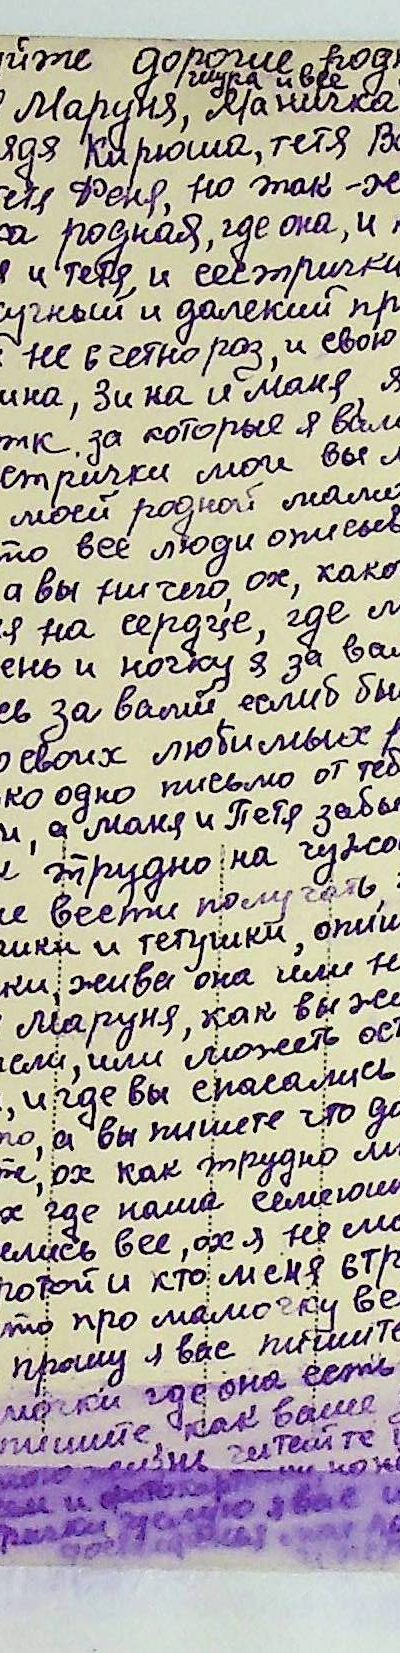 йте дорогие родн
шура и все
Маруня, Маничка
ядя Кирюша, тетя В
тетя Феня, но так-же
ка родная, где она, и
я и тетя, и сестрички
кучный и далекий пр
не вчетно раз, и свою
ина, Зина и Маня, я
тк. за которые я вам
стрички мои вы
моей родной мами
то все люди описыв
а вы ничего, ох, како
я на сердце, где м
ень и ночку я за вам
сь за вами, еслиб бы
о своих любимых р
ко одно письмо от теб
и, а Маня и Петя забы
трудно на чужо
ие вести получать,
шки и тетушки, опиш
ки, жива она или н
Маруня, как вы жи
или, или можеть ост
, и где вы спасались
то, а вы пишете что до
те, ох как трудно м
х где наша семеюш
елись все, ох я не мо
ротой и кто меня втр
то про мамочку ве
прошу я вас пишите
мочки где она есть
пишите, как ваше
жизнь читайте
и фотокарт
рички целую я вас и